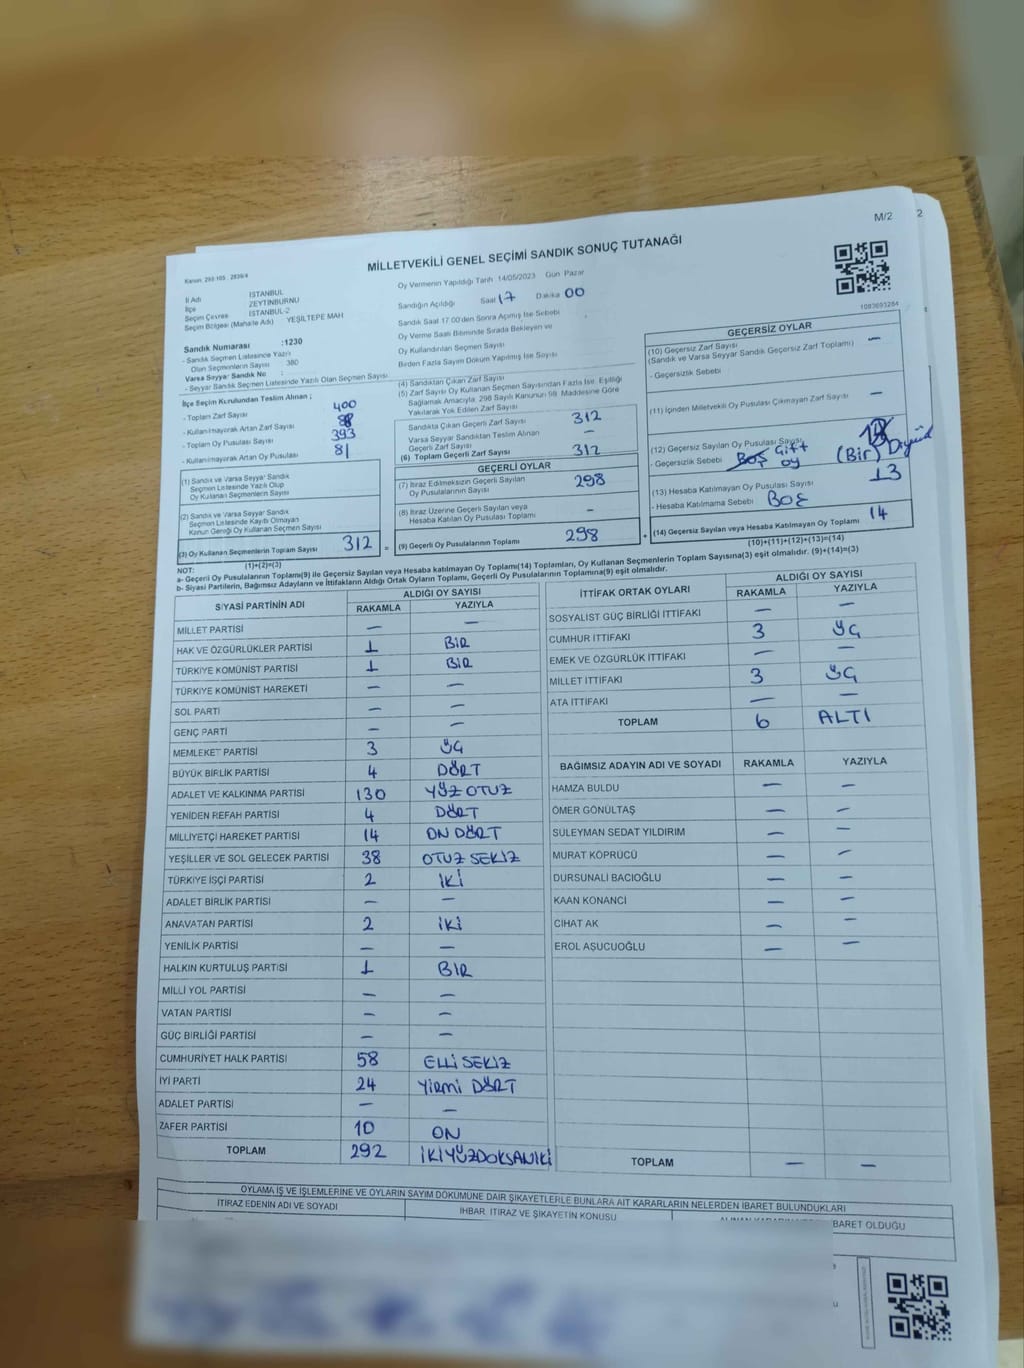 M/2
2
MİLLETVEKİLİ GENEL SEÇİMİ SANDIK SONUÇ TUTANAĞI
İl Adı İSTANBUL
İlçe ZEYTİNBURNU
Seçim Çevres İSTANBUL-2
Seçim Bölgesi (Mahalle Adı) YEŞİLTEPE MAH
Sandık Numarası :1230
- Sandık Seçmen Listesinde Yazılı
Olan Seçmenlerin Sayısı 380
Varsa Seyyar Sandık No :
- Seyyar Sandık Seçmen Listesinde Yazılı Olan Seçmen Sayısı
Oy Vermenin Yapıldığı Tarih 14/05/2023 Gün Pazar
Sandığın Açıldığı Saat 17 Dakika 00
Sandık Saat 17:00'den Sonra Açılmış İse Sebebi
Oy Verme Saati Bitiminde Sırada Bekleyen ve
Oy Kullandırılan Seçmen Sayısı
Birden Fazla Sayım Döküm Yapılmış İse Sayısı
1083693284
İlçe Seçim Kurulundan Teslim Alınan ;
- Toplam Zarf Sayısı 400
- Kullanılmayarak Artan Zarf Sayısı
- Toplam Oy Pusulası Sayısı 393
- Kullanılmayarak Artan Oy Pusulası 81
(1) Sandık ve Varsa Seyyar Sandık
Seçmen Listesinde Yazılı Olup
Oy Kullanan Seçmenlerin Sayısı
(2) Sandık ve Varsa Seyyar Sandık
Seçmen Listesinde Kayıtlı Olmayan
Kanun Gereği Oy Kullanan Seçmen Sayısı
(3) Oy Kullanan Seçmenlerin Toplam Sayısı 312 =
(1)+(2)=(3)
(4) Sandıktan Çıkan Zarf Sayısı
(5) Zarf Sayısı Oy Kullanan Seçmen Sayısından Fazla İse, Eşitliği
Sağlamak Amacıyla, 298 Sayılı Kanunun 98. Maddesine Göre
Yakılarak Yok Edilen Zarf Sayısı
Sandıkta Çıkan Geçerli Zarf Sayısı 312
Varsa Seyyar Sandıktan Teslim Alınan
Geçerli Zarf Sayısı –
(6) Toplam Geçerli Zarf Sayısı 312
GEÇERLİ OYLAR
(7) İtiraz Edilmeksizin Geçerli Sayılan
Oy Pusulalarının Sayısı 298
(8) İtiraz Üzerine Geçerli Sayılan veya
Hesaba Katılan Oy Pusulası Toplamı –
(9) Geçerli Oy Pusulalarının Toplamı 298 +
GEÇERSİZ OYLAR
(10) Geçersiz Zarf Sayısı
(Sandık ve Varsa Seyyar Sandık Geçersiz Zarf Toplamı) –
- Geçersizlik Sebebi
(11) İçinden Milletvekili Oy Pusulası Çıkmayan Zarf Sayısı –
(12) Geçersiz Sayılan Oy Pusulası Sayısı
- Geçersizlik Sebebi BOŞ Çift oy (Bir)
(13) Hesaba Katılmayan Oy Pusulası Sayısı 13
- Hesaba Katılmama Sebebi BOŞ
(14) Geçersiz Sayılan veya Hesaba Katılmayan Oy Toplamı 14
(10)+(11)+(12)+(13)=(14)
NOT:
a- Geçerli Oy Pusulalarının Toplamı(9) ile Geçersiz Sayılan veya Hesaba katılmayan Oy Toplamı(14) Toplamları, Oy Kullanan Seçmenlerin Toplam Sayısına(3) eşit olmalıdır. (9)+(14)=(3)
b- Siyasi Partilerin, Bağımsız Adayların ve İttifakların Aldığı Ortak Oyların Toplamı, Geçerli Oy Pusulalarının Toplamına(9) eşit olmalıdır.
SİYASİ PARTİNİN ADI ALDIĞI OY SAYISI
RAKAMLA YAZIYLA
MİLLET PARTİSİ – –
HAK VE ÖZGÜRLÜKLER PARTİSİ 1 BİR
TÜRKİYE KOMÜNİST PARTİSİ 1 BİR
TÜRKİYE KOMÜNİST HAREKETİ – –
SOL PARTİ – –
GENÇ PARTİ – –
MEMLEKET PARTİSİ 3 ÜÇ
BÜYÜK BİRLİK PARTİSİ 4 DÖRT
ADALET VE KALKINMA PARTİSİ 130 YÜZ OTUZ
YENİDEN REFAH PARTİSİ 4 DÖRT
MİLLİYETÇİ HAREKET PARTİSİ 14 ON DÖRT
YEŞİLLER VE SOL GELECEK PARTİSİ 38 OTUZ SEKİZ
TÜRKİYE İŞÇİ PARTİSİ 2 İKİ
ADALET BİRLİK PARTİSİ – –
ANAVATAN PARTİSİ 2 İKİ
YENİLİK PARTİSİ – –
HALKIN KURTULUŞ PARTİSİ 1 BİR
MİLLİ YOL PARTİSİ – –
VATAN PARTİSİ – –
GÜÇ BİRLİĞİ PARTİSİ – –
CUMHURİYET HALK PARTİSİ 58 ELLİ SEKİZ
İYİ PARTİ 24 YİRMİ DÖRT
ADALET PARTİSİ – –
ZAFER PARTİSİ 10 ON
TOPLAM 292 İKİYÜZDOKSANİKİ
İTTİFAK ORTAK OYLARI ALDIĞI OY SAYISI
RAKAMLA YAZIYLA
SOSYALİST GÜÇ BİRLİĞİ İTTİFAKI – –
CUMHUR İTTİFAKI 3 ÜÇ
EMEK VE ÖZGÜRLÜK İTTİFAKI – –
MİLLET İTTİFAKI 3 ÜÇ
ATA İTTİFAKI – –
TOPLAM 6 ALTI
BAĞIMSIZ ADAYIN ADI VE SOYADI RAKAMLA YAZIYLA
HAMZA BULDU – –
ÖMER GÖNÜLTAŞ – –
SÜLEYMAN SEDAT YILDIRIM – –
MURAT KÖPRÜCÜ – –
DURSUNALİ BACIOĞLU – –
KAAN KONANCİ – –
CİHAT AK – –
EROL AŞUCUOĞLU – –
TOPLAM – –
OYLAMA İŞ VE İŞLEMLERİNE VE OYLARIN SAYIM DÖKÜMÜNE DAİR ŞİKAYETLERLE BUNLARA AİT KARARLARIN NELERDEN İBARET BULUNDUKLARI
İTİRAZ EDENİN ADI VE SOYADI İHBAR, İTİRAZ VE ŞİKAYETİN KONUSU BARET OLDUĞU